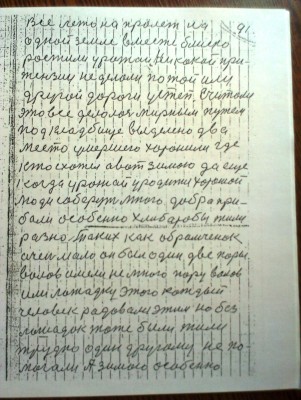 91
Все лето на пролет на
одной земле вместе близко
ростили урожай. Никакой при-
тензии не делали по той или
другой дороги у тет. Считали
это все делолоч мирным путем
под кладбище выделено два
место умершего хоронили где
кто схотел а вот зимою да еще
когда урожай уродити хороший
люди соберут много добра при-
бали особенно хлиборобы жили
разно. Таких как обраменок
очен мало он был один две пары
волов имели не много пару волов
или лошадку этого каждый
человек радовали этим но без
лошадок тоже были жили
трудно один другому не по-
могали А зимою особенно